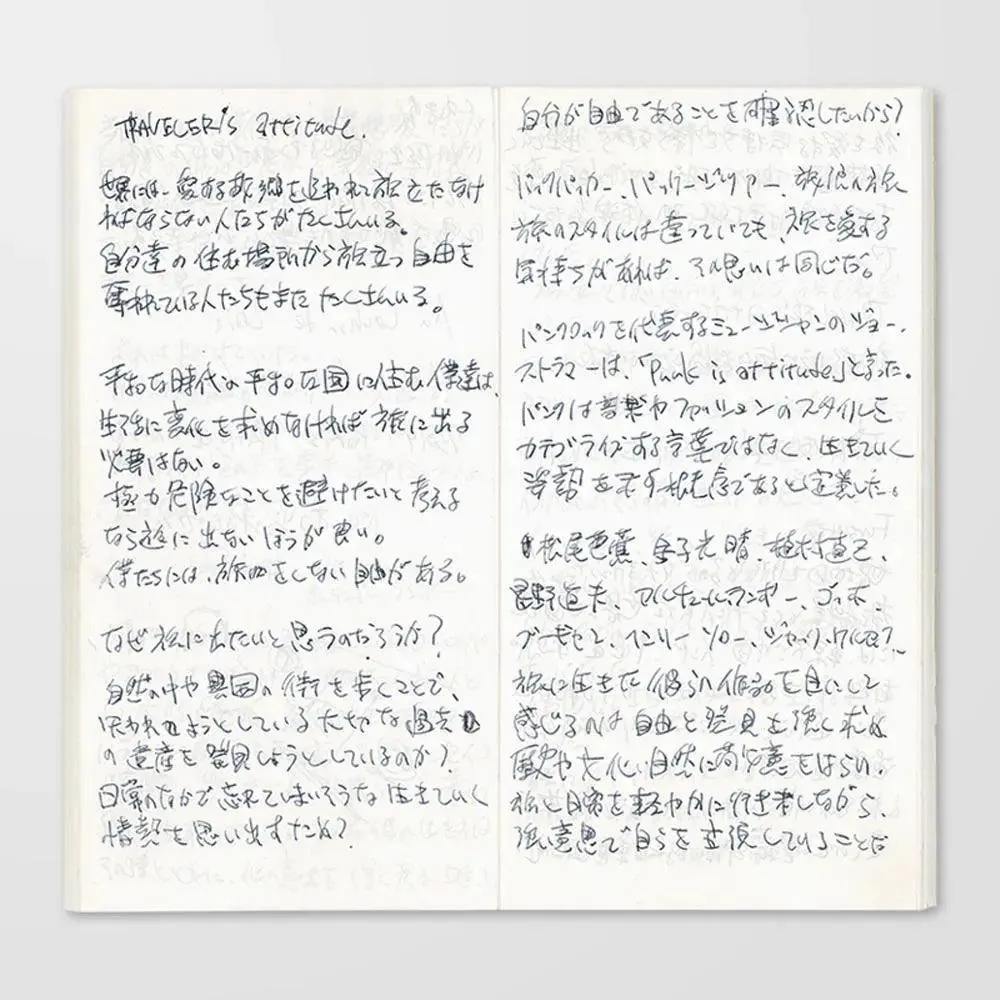 TRAVELER's attitude.
世界には、愛する故郷を追われ旅立たなけ
ればならない人たちがたくさんいる。
自分達の住む場所から旅立つ自由を
奪われている人たちもまたたくさんいる。
平和な時代の平和な国に住む僕達は、
生活に変化を求めなければ旅に出る
必要はない。
極力危険なことを避けたいと考える
なら旅に出ないほうが良い。
僕たちには、旅をしない自由がある。
なぜ旅に出たいと思うのだろうか?
自然の中や異国の街を歩くことで、
失われようとしている大切な過去
の遺産を発見しようとしているのか?
日常のなかで忘れてしまいそうな生きていく
情熱を思い出すため?
自分が自由であることを確認したいから?
バックパッカー、パッケージツアー、放浪の旅
旅のスタイルは違っていても、旅を愛する
気持ちがあれば、その思いは同じだ。
パンクロックを代表するミュージシャンのジョー・
ストラマーは、「Punk is attitude」と言った。
パンクは音楽やファッションのスタイルを
カテゴライズする言葉ではなく、生きていく
姿勢を示す概念であると定義した。
松尾芭蕉、金子光晴、植村直己、
星野道夫、アルチュールランボー、ゴッホ、
ブーゲンビル、ヘンリー・ソロー、ジャック・ケルアック…
旅に生きた彼らの作品を目にして
感じるのは自由と発見を強く求め
歴史や文化、自然に敬意をはらい、
旅と日常を軽やかに行き来しながら
強い意思で自らを主張していることだ